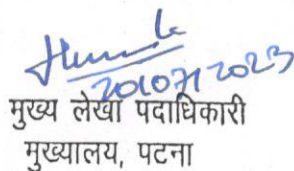 20/07/2023
मुख्य लेखा पदाधिकारी
मुख्यालय, पटना